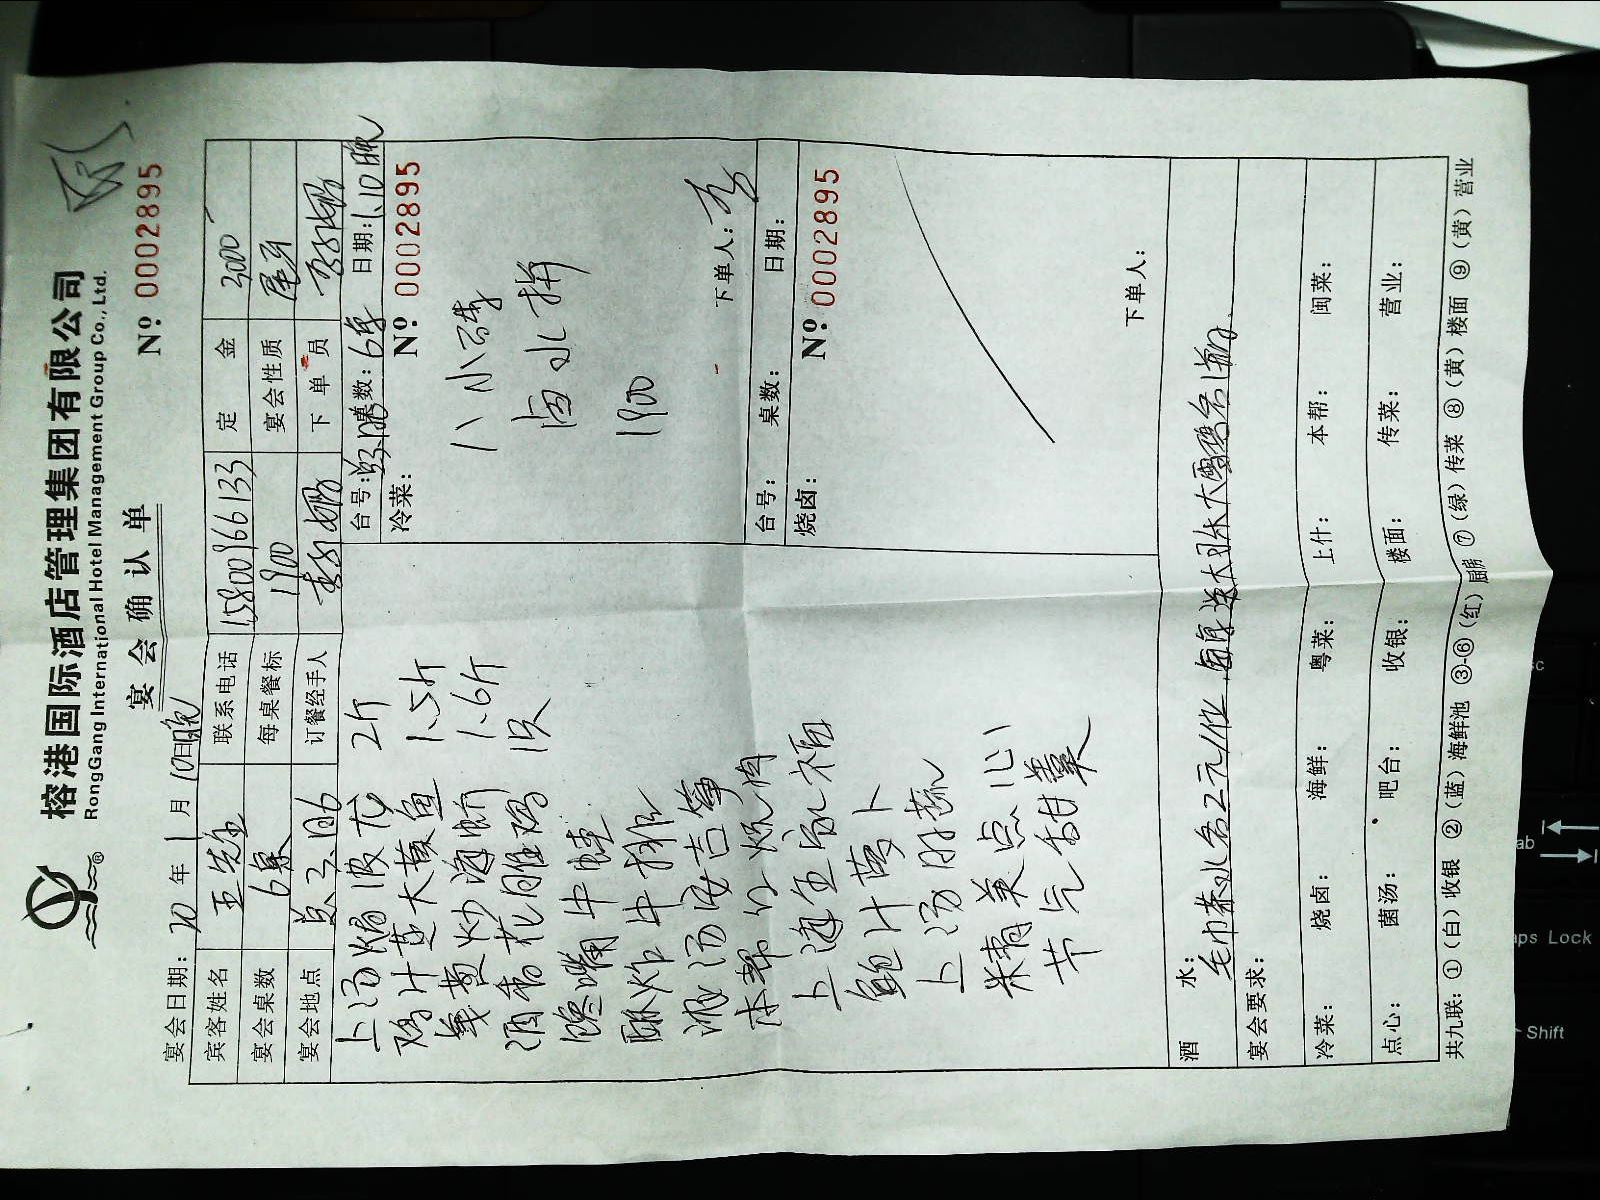 榕港国际酒店管理集团有限公司
RongGang International Hotel Management Group Co., Ltd.
宴会确认单
宴会日期: 年 1 月 10日晚
№ 0002895
宾客姓名 王先生 联系电话 15800966133 定金 3000
宴会桌数 6桌 每桌餐标 1900 宴会性质 尾牙
宴会地点 订餐经手人 下单员
上汤焗波龙 2斤
鸡汁蒸大黄鱼 1.5斤
炒海蛳 1.6斤
酒香花雕鸡 1只
馋嘴牛蛙
酥炸牛排
浓汤
本帮红烧肉
上海全家福
鲍汁萝卜
上汤时蔬
米精美点心
节元甜羹
台号: 桌数: 6桌 日期: 1.10晚
冷菜: № 0002895
八小碟
卤水拼
1900
下单人:
台号: 桌数: 日期:
烧卤: № 0002895
下单人:
酒水:
毛巾茶水各2元/位,每桌送大 大雪碧各1瓶
宴会要求:
冷菜: 烧卤: 海鲜: 粤菜: 上什: 本帮: 闽菜:
点心: 菌汤: 吧台: 收银: 楼面: 传菜: 营业:
共九联: ①(白)收银 ②(蓝)海鲜池 ③-⑥(红)厨房 ⑦(绿)传菜 ⑧(黄)楼面 ⑨(黄)营业
Caps Lock
Shift